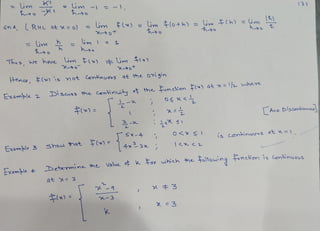 = lim -h/h = lim -1 = -1.
h→0 h→0
(31)
and, (RHL at x=0) = lim f(x) = lim f(0+h) = lim f(h) = lim |h|/h
x→0+ h→0 h→0 h→0
= lim h/h = lim 1 = 1
h→0 h→0
Thus, we have lim f(x) ≠ lim f(x)
x→0- x→0+
Hence, f(x) is not continuous at the origin
Example 2 Discuss the continuity of the function f(x) at x=1/2 where
f(x) = { 1/2 - x ; 0≤x<1/2
1 ; x=1/2
3/2 - x ; 1/2<x≤1.
[Ans Discontinuous]
Example 3 Show that f(x) = { 5x-4 ; 0<x≤1 is continuous at x=1.
4x³-3x ; 1<x<2
Example 4 Determine the value of K for which the following function is continuous
at x=3
f(x) = { x²-9/x-3 , x≠3
K , x=3